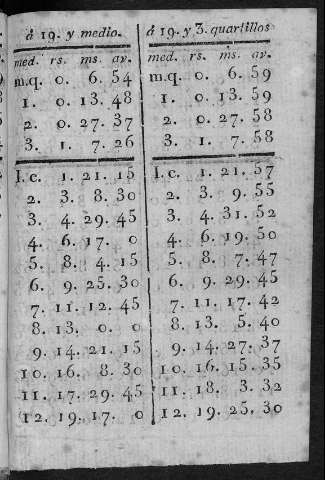 á 19. y medio.
med. rs. ms. av.
m.q. 0. 6. 54
1. 0. 13. 48
2. 0. 27. 37
3. 1. 7. 26
I.c. 1. 21. 15
2. 3. 8. 30
3. 4. 29. 45
4. 6. 17. 0
5. 8. 4. 15
6. 9. 25. 30
7. 11. 12. 45
8. 13. 0. 0
9. 14. 21. 15
10. 16. 8. 30
11. 17. 29. 45
12. 19. 17. 0
á 19. y 3. quartillos
med. rs. ms. av.
m.q. 0. 6. 59
1. 0. 13. 59
2. 0. 27. 58
3. 1. 7. 58
I.c. 1. 21. 57
2. 3. 9. 55
3. 4. 31. 52
4. 6. 19. 50
5. 8. 7. 47
6. 9. 29. 45
7. 11. 17. 42
8. 13. 5. 40
9. 14. 27. 37
10. 16. 15. 35
11. 18. 3. 32
12. 19. 25. 30